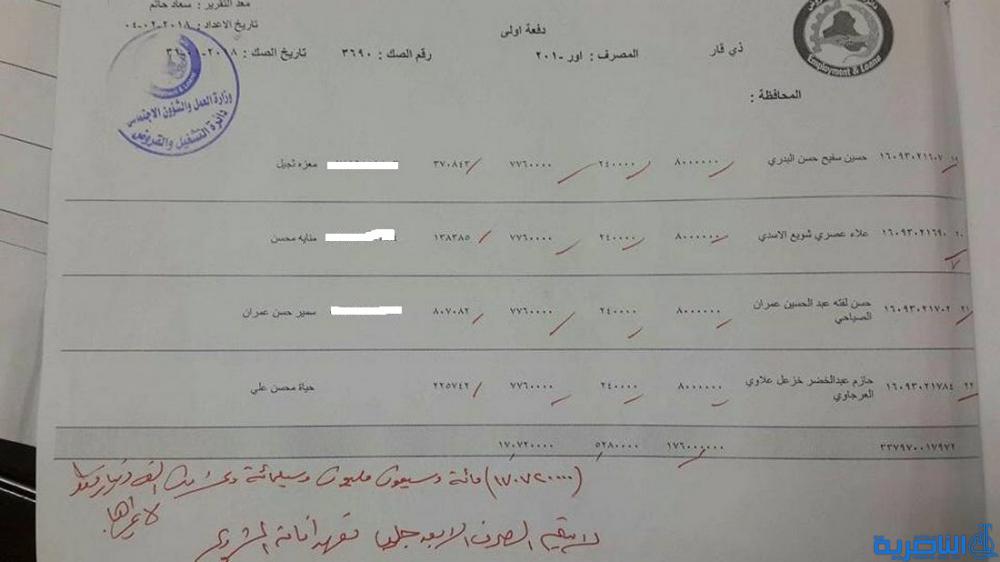 معد التقرير : سعاد حاتم
تاريخ الاعداد : ٢٠١٨-٠٢-٠٤
دفعة اولى
ذي قار
المصرف : اور -٢٠١
رقم الصك : ٣٦٩٠
تاريخ الصك :
المحافظة :
Employment & Loans
وزارة العمل والشؤون الاجتماعية
دائرة التشغيل والقروض
١٦٠٩٣٠٢١٦٠٧ حسين سفيح حسن البدري ٨٠٠٠٠٠٠ ٢٤٠٠٠٠ ٧٧٦٠٠٠٠ ٣٧٠٨٤٣ معزه ثجيل
٢٠ ١٦٠٩٣٠٢١٦٩٠ علاء عصري شويع الاسدي ٨٠٠٠٠٠٠ ٢٤٠٠٠٠ ٧٧٦٠٠٠٠ ١٣٨٣٨٥ منايه محسن
٢١ ١٦٠٩٣٠٢١٧٠٢ حسن لفته عبد الحسين عمران الصياحي ٨٠٠٠٠٠٠ ٢٤٠٠٠٠ ٧٧٦٠٠٠٠ ٨٠٧٠٨٢ سمير حسن عمران
٢٢ ١٦٠٩٣٠٢١٧٨٤ حازم عبدالخضر خزعل علاوي العرجاوي ٨٠٠٠٠٠٠ ٢٤٠٠٠٠ ٧٧٦٠٠٠٠ ٢٢٥٧٤٢ حياة محسن علي
٣٣٧٩٧٠٠١٧٩٧٢ ١٧٦٠٠٠٠٠٠ ٥٢٨٠٠٠٠ ١٧٠٧٢٠٠٠٠
(١٧٠٧٢٠٠٠٠) مائة وسبعون مليون وسبعمائة وعشرون الف دينار فقط
لا غيرها
لا يتم الصرف الا بعد جلب تعهد امانة المشروع
الناصرية